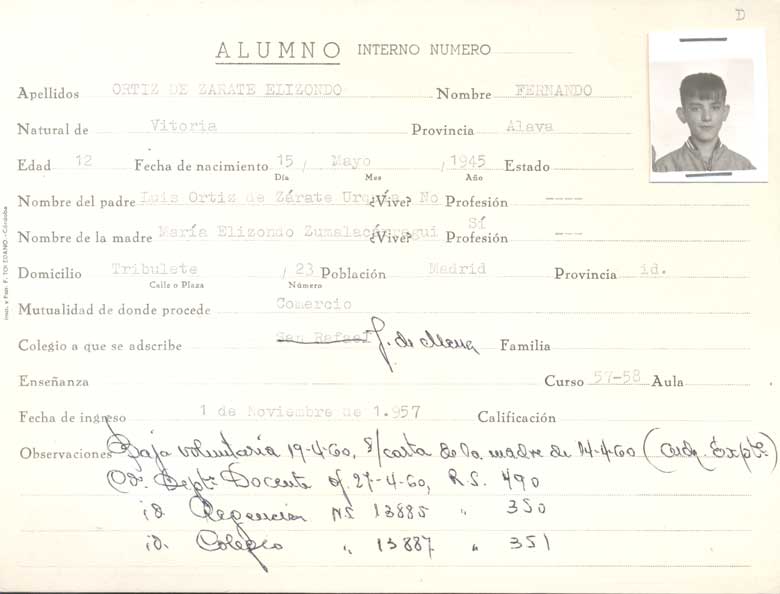 D
ALUMNO INTERNO NUMERO
Apellidos ORTIZ DE ZARATE ELIZONDO Nombre FERNANDO
Natural de Vitoria Provincia Alava
Edad 12 Fecha de nacimiento 15 / Mayo / 1945 Estado
Día Mes Año
Nombre del padre Luis Ortiz de Zárate Urquía ¿Vive? No Profesión ----
Nombre de la madre María Elizondo Zumalacárregui ¿Vive? Sí Profesión ---
Domicilio Tribulete / 23 Población Madrid Provincia id.
Calle o Plaza Número
Mutualidad de donde procede Comercio
Colegio a que se adscribe San Rafael J. de Mena Familia
Enseñanza Curso 57-58 Aula
Fecha de ingreso 1 de Noviembre de 1.957 Calificación
Observaciones Baja voluntaria 19-4-60, s/carta de la madre de 14-4-60 (
Dept. Docente of. 27-4-60, R.S. 490
id. NS 13885 " 350
id. Colegio " 13887 " 351
TOLEDANO.-Córdoba